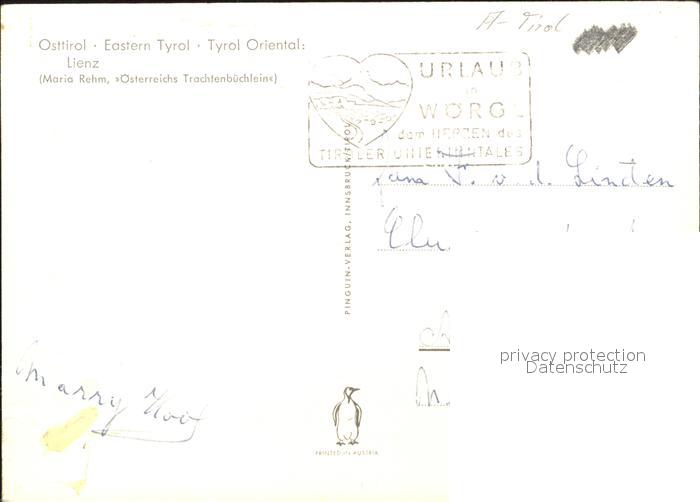 A-Tirol
Osttirol · Eastern Tyrol · Tyrol Oriental:
Lienz
(Maria Rehm, »Österreichs Trachtenbüchlein«)
URLAUB
in
WÖRGL
dem HERZEN des
TIROLER UNTERINNTALES
F. v. d. Linden
PINGUIN-VERLAG, INNSBRUCK/TIROL
privacy protection
Datenschutz
Marry
PRINTED IN AUSTRIA